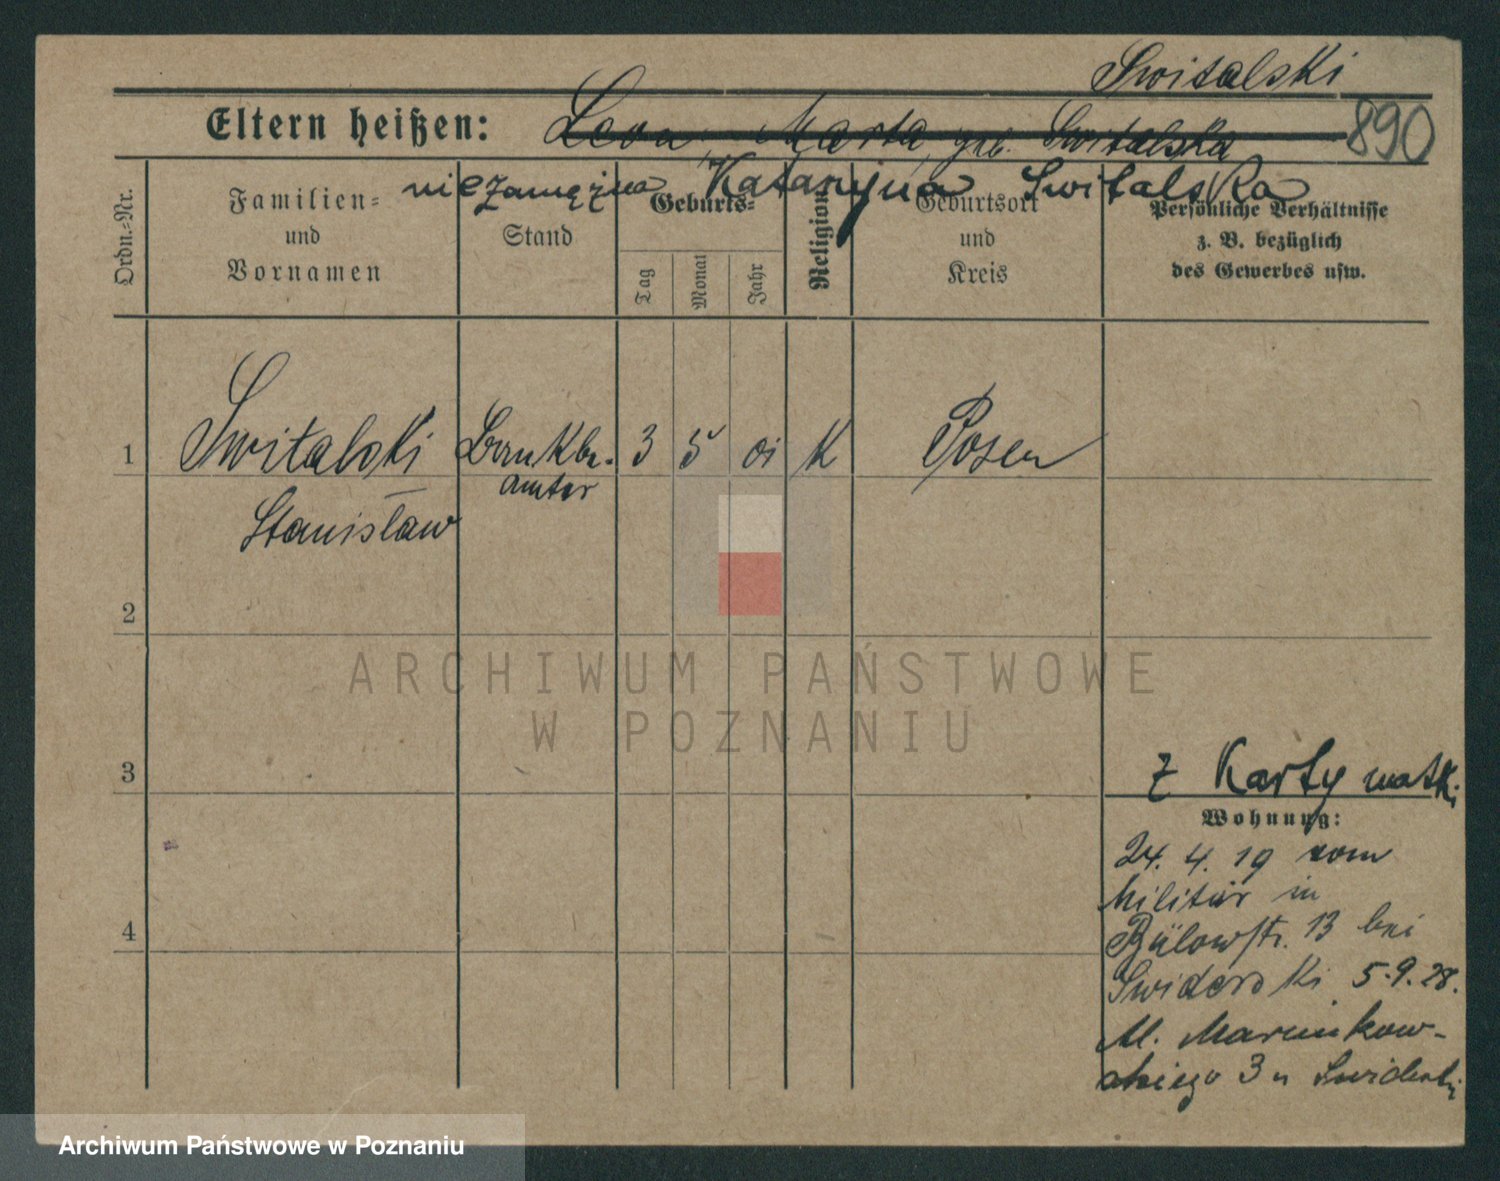 Switalski
890
Eltern heißen: Leon, Marta geb. Switalska
niezamężna Katarzyna Switalska
Ordn.-Nr.
Familien-
und
Vornamen
Stand
Geburts-
Tag
Monat
Jahr
Religion
Geburtsort
und
Kreis
Persönliche Verhältnisse
z. B. bezüglich
des Gewerbes usw.
1 Switalski Bankbe- 3 5 01 K Posen
amter
Stanisław
2
3
4
z Karty matki
Wohnung:
24. 4. 19 vom
Militär in
Bülowstr. 13 bei
Swiderski 5.9.28.
M. Marcinkow-
skiego 3 u Swiderski
ARCHIWUM PAŃSTWOWE
W POZNANIU
Archiwum Państwowe w Poznaniu